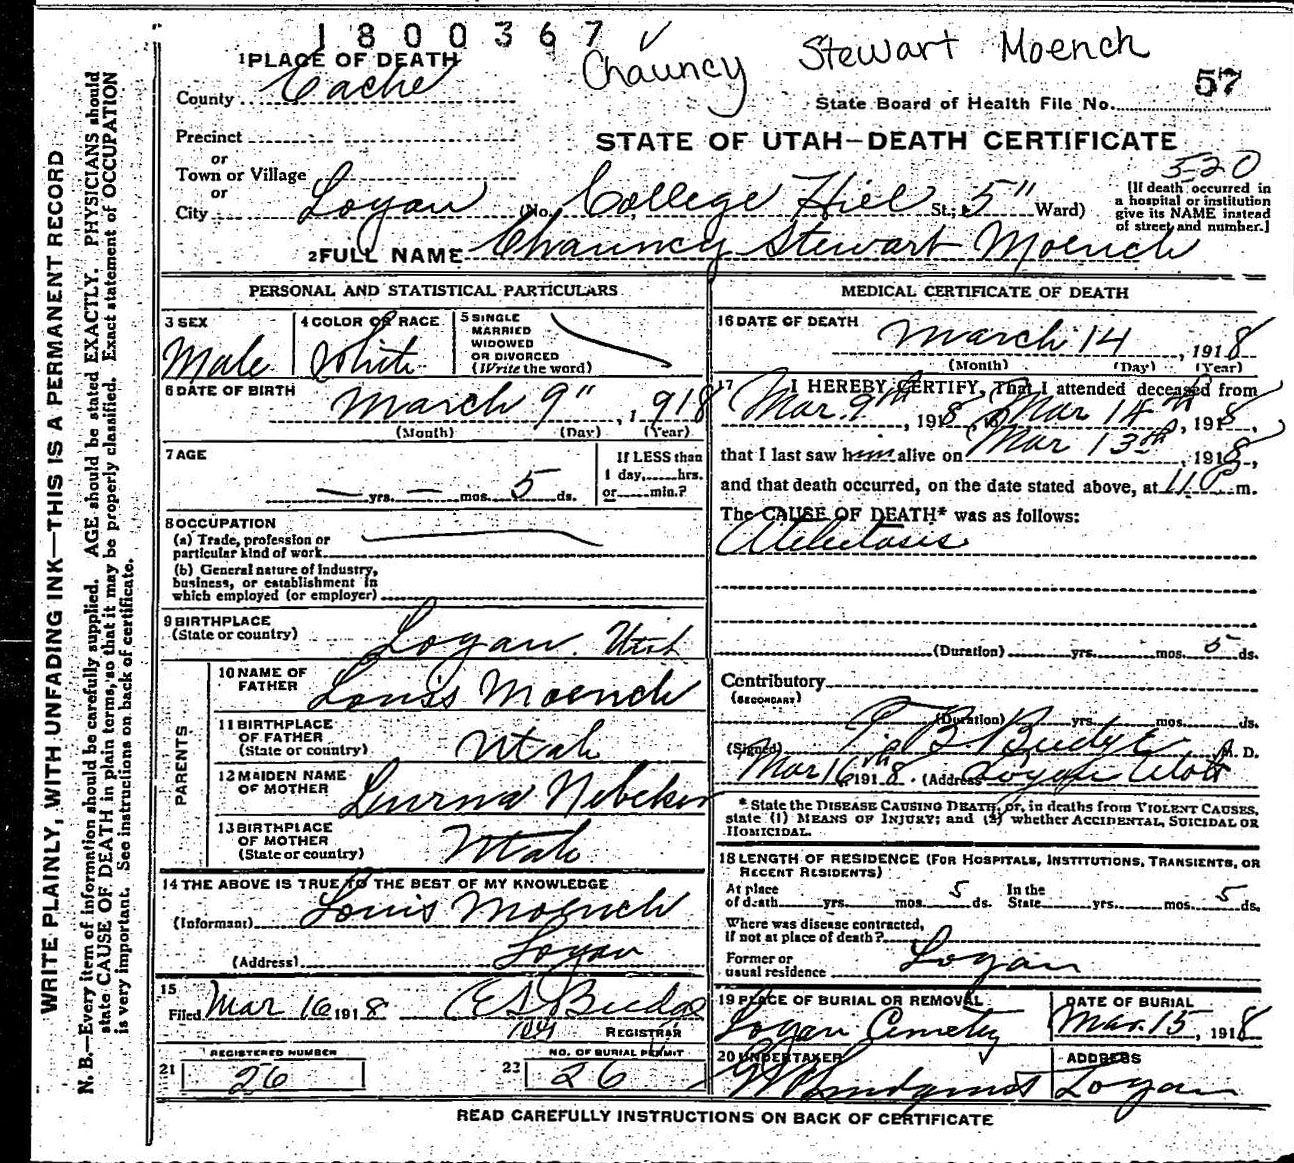 1800367
Chauncy Stewart Moench
1 PLACE OF DEATH
57
County Cache
State Board of Health File No.
Precinct
STATE OF UTAH—DEATH CERTIFICATE
or
Town or Village
520
or
City Logan (No. College Hill St.; 5" Ward)
[If death occurred in
a hospital or institution
give its NAME instead
of street and number.]
2 FULL NAME Chauncy Stewart Moench
PERSONAL AND STATISTICAL PARTICULARS
3 SEX
Male
4 COLOR OR RACE
White
5 SINGLE
MARRIED
WIDOWED
OR DIVORCED
(Write the word)
6 DATE OF BIRTH
March 9", 1918
(Month) (Day) (Year)
7 AGE
— yrs. — mos. 5 ds.
If LESS than
1 day,......hrs.
or......min.?
8 OCCUPATION
(a) Trade, profession or
particular kind of work
(b) General nature of industry,
business, or establishment in
which employed (or employer)
9 BIRTHPLACE
(State or country)
Logan. Utah
PARENTS
10 NAME OF
FATHER
Louis Moench
11 BIRTHPLACE
OF FATHER
(State or country)
Utah
12 MAIDEN NAME
OF MOTHER
Nebeker
13 BIRTHPLACE
OF MOTHER
(State or country)
Utah
14 THE ABOVE IS TRUE TO THE BEST OF MY KNOWLEDGE
(Informant) Louis Moench
(Address) Logan
15
Filed Mar 16 1918
REGISTRAR
REGISTERED NUMBER
21 26
NO. OF BURIAL PERMIT
22 26
MEDICAL CERTIFICATE OF DEATH
16 DATE OF DEATH
March 14, 1918
(Month) (Day) (Year)
17 I HEREBY CERTIFY, That I attended deceased from
Mar. 9th, 1918, to Mar 14th, 1918,
that I last saw him alive on Mar 13th, 1918,
and that death occurred, on the date stated above, at 11 P m.
The CAUSE OF DEATH* was as follows:
Atelectasis
(Duration) yrs. mos. 5 ds.
Contributory
(SECONDARY)
(Duration) yrs. mos. ds.
(Signed) T. B. Budge M. D.
Mar 16th 1918. (Address) Logan Utah
* State the DISEASE CAUSING DEATH, or, in deaths from VIOLENT CAUSES,
state (1) MEANS OF INJURY; and (2) whether ACCIDENTAL, SUICIDAL OR
HOMICIDAL.
18 LENGTH OF RESIDENCE (FOR HOSPITALS, INSTITUTIONS, TRANSIENTS, OR
RECENT RESIDENTS)
At place
of death yrs. mos. 5 ds.
In the
State yrs. mos. 5 ds.
Where was disease contracted,
if not at place of death?
Former or
usual residence
Logan
19 PLACE OF BURIAL OR REMOVAL
Logan Cemetry
DATE OF BURIAL
Mar. 15, 1918
20 UNDERTAKER
ADDRESS
Logan
READ CAREFULLY INSTRUCTIONS ON BACK OF CERTIFICATE
WRITE PLAINLY, WITH UNFADING INK—THIS IS A PERMANENT RECORD
N. B.—Every item of information should be carefully supplied. AGE should be stated EXACTLY. PHYSICIANS should
state CAUSE OF DEATH in plain terms, so that it may be properly classified. Exact statement of OCCUPATION
is very important. See instructions on back of certificate.